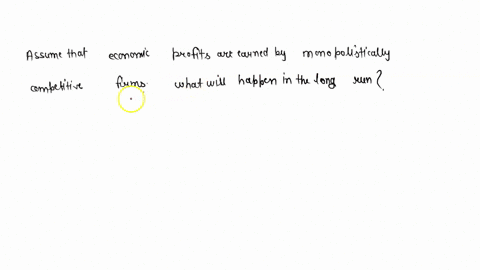 Assume that economic profits are earned by monopolistically
competitive firms. what will happen in the long run?